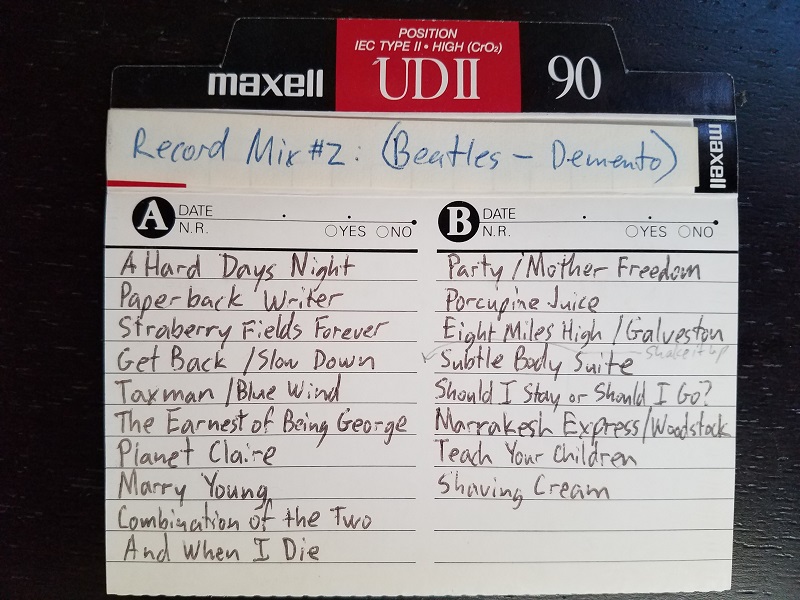 POSITION
IEC TYPE II • HIGH (CrO₂)
maxell UDII 90
Record Mix #2: (Beatles - Demento)
maxell
A DATE
N.R. YES NO
A Hard Days Night
Paperback Writer
Straberry Fields Forever
Get Back / Slow Down
Taxman / Blue Wind
The Earnest of Being George
Planet Claire
Marry Young
Combination of the Two
And When I Die
B DATE
N.R. YES NO
Party / Mother Freedom
Porcupine Juice
Eight Miles High / Galveston
Shake it up
Subtle Body Suite
Should I Stay or Should I Go?
Marrakesh Express/Woodstock
Teach Your Children
Shaving Cream